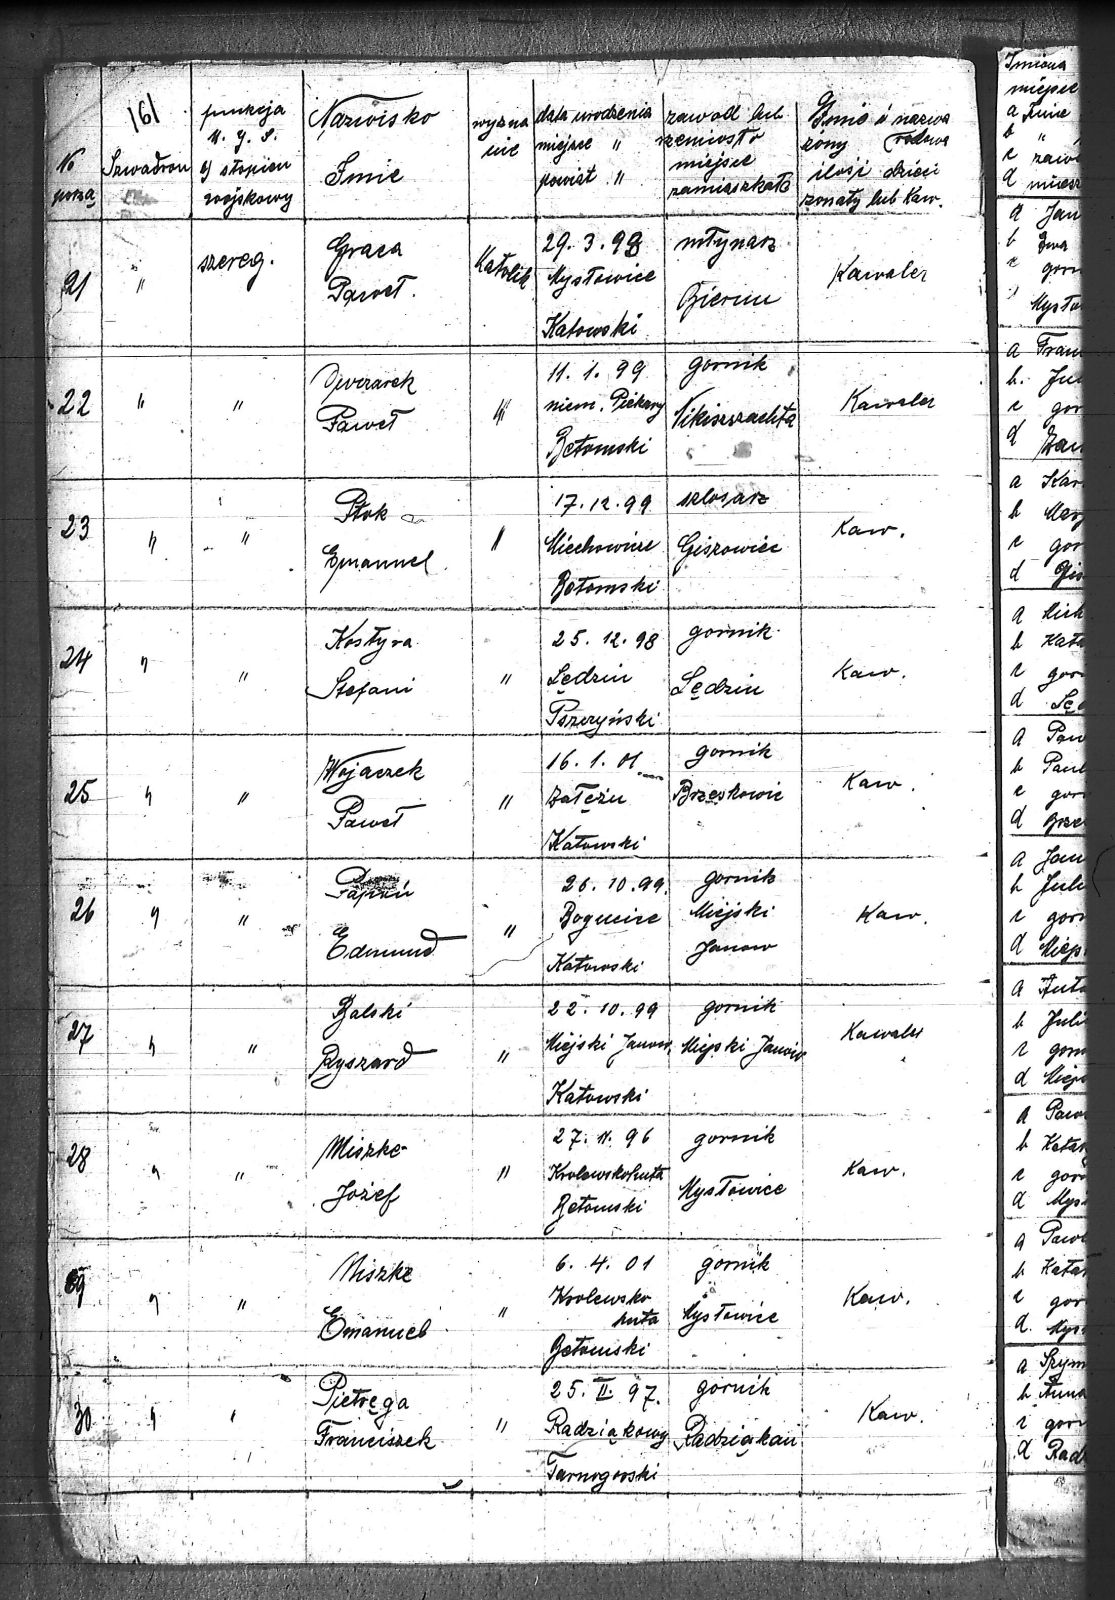 161
No porzą
Szwadron
funkcja
w. g. s.
y stopien
wojskowy
Nazwisko
Imie
wyzna
nie
data urodzenia
miejsce "
powiat "
zawod lub
rzemiosło
miejsce
zamieszkała
Imie i nazwa
żony rodowe
ilośi dzieci
żonaty lub Kaw.
21
"
szereg.
Graca
Paweł.
Katolik
29. 3. 98
Mysłowice
Katowski
młynarz
Bierun
Kawaler
22
"
"
Owczarek
Paweł
"
11. 1. 99
niem. Piekary
Betomski
gornik
Nikiszszachta
Kawaler
23
"
"
Ptok
Emanuel
"
17. 12. 99
Miechowice
Betomski
szlosarz
Giszowiec
Kaw.
24
"
"
Kostyra
Stefani
"
25. 12. 98
Lędzin
Pszczyński
gornik
Lędzin
Kaw.
25
"
"
Wojaczek
Paweł
"
16. 1. 01
Załężu
Katowski
gornik
Brzęskowic
Kaw.
26
"
"
Edmund
"
26. 10. 99.
Bogucice
Katowski
gornik
Miejski
Janow
Kaw.
27
"
"
Balski
Ryszard
"
22. 10. 99
Miejski Janow
Katowski
gornik
Miejski Janow
Kawaler
28
"
"
Miszke
Jozef
"
27. 11. 96
Krolewskohuta
Betomski
gornik
Mysłowice
Kaw.
29
"
"
Miszke
Emanuel
"
6. 4. 01
Krolewsko
huta
Betomski
gornik
Mysłowice
Kaw.
30
"
"
Pietręga
Franciszek
"
25. II. 97.
Radziąkowy
Tarnogorski
gornik
Radziąkau
Kaw.
Imiona
miejsce
a Imie
b "
c zawo
d miesz
a Jan
b Ewa
c gorn
Mysło
a Fran
b. Ju
c gor
d Jan
a Kar
b Mary
c gor
d Gis
a Mich
b Kata
c gor
d Lęd
a Paw
b Paul
c gor
d Brze
a Jan
b Juli
c gorn
d Miejs
a Anto
b Juli
c gorn
d Miejs
a Pawe
b Katar
c gorn
d Mys
a Pawe
b Katar
c gor
d. Mys
a Szym
b Anna
c gorn
d Rad